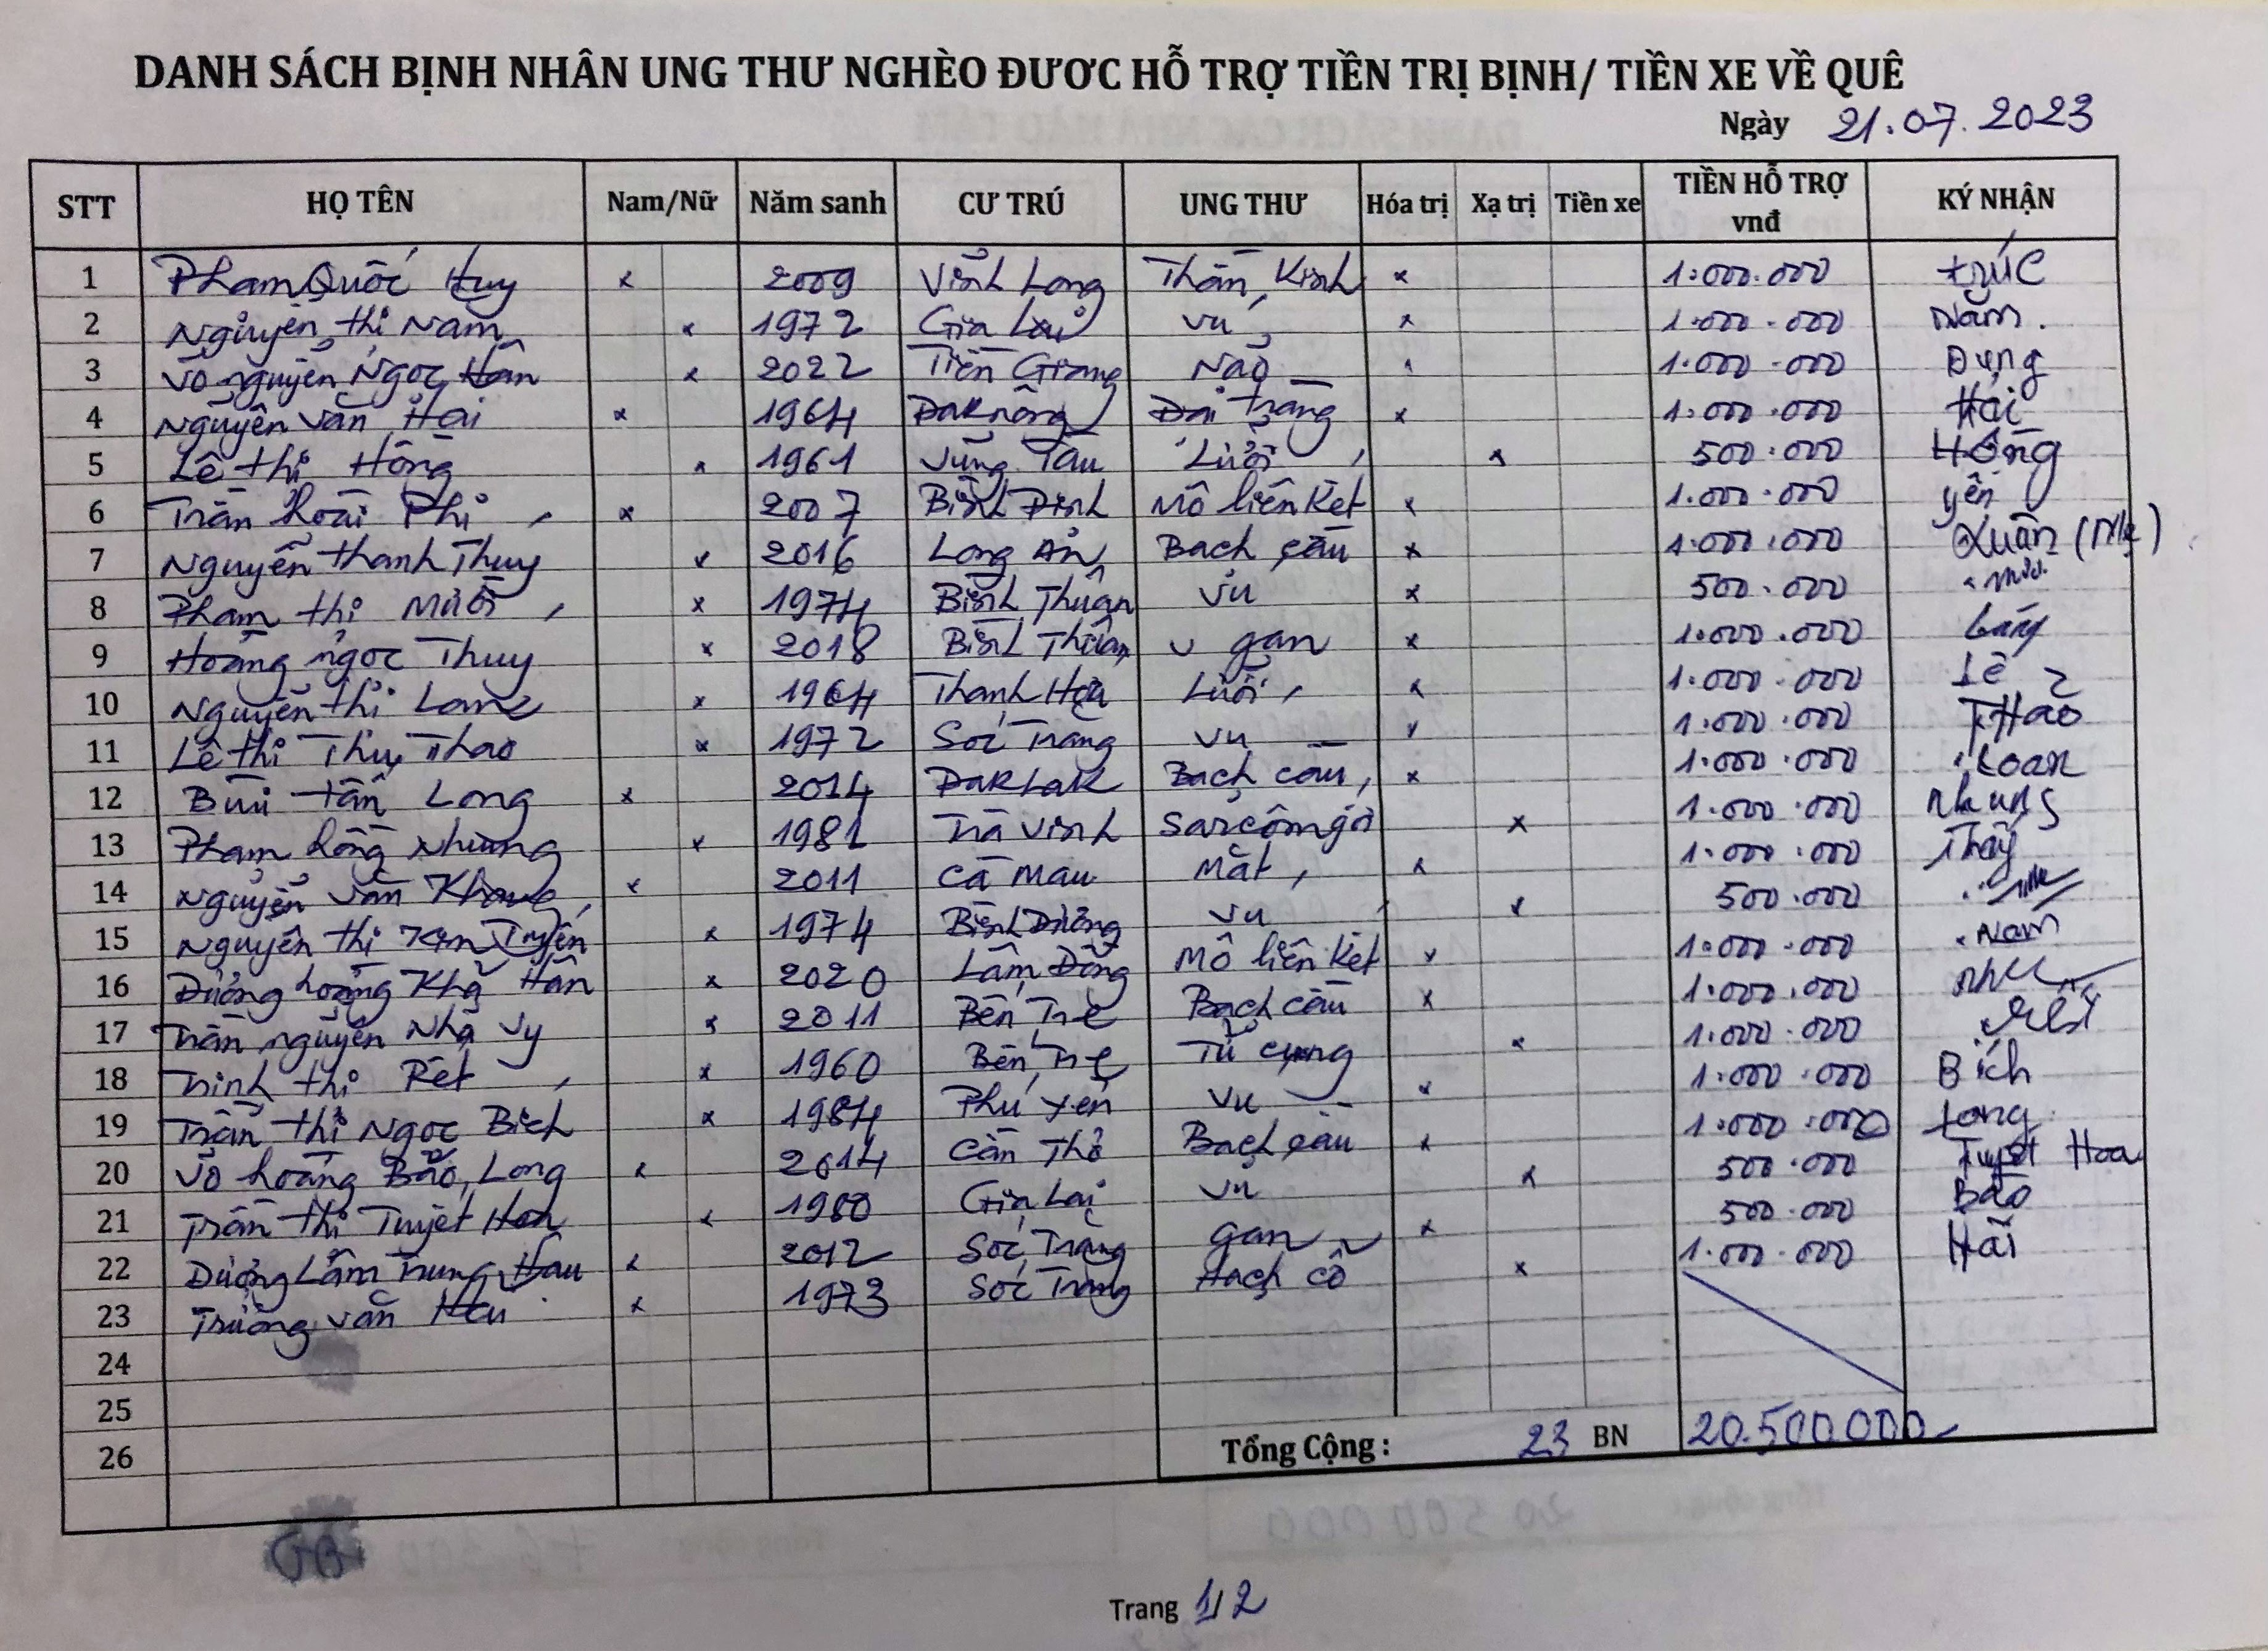 DANH SÁCH BỊNH NHÂN UNG THƯ NGHÈO ĐƯƠC HỖ TRỢ TIỀN TRỊ BỊNH/ TIỀN XE VỀ QUÊ
Ngày 21.07.2023
STT HỌ TÊN Nam/Nữ Năm sanh CƯ TRÚ UNG THƯ Hóa trị Xạ trị Tiền xe TIỀN HỖ TRỢ vnđ KÝ NHẬN
1 Phạm Quốc Huy x 2009 Vĩnh Long Thần Kinh x 1.000.000 trúc
2 Nguyễn thị Năm x 1972 Gia Lai vú x 1.000.000 Năm.
3 Võ nguyễn Ngọc Hân x 2022 Tiền Giang Não x 1.000.000 Dung
4 Nguyễn Văn Hai x 1964 Đaknông Đại tràng x 1.000.000 Hai
5 Lê thị Hồng x 1961 Vũng Tàu Lưỡi x 500.000 Hồng
6 Trần hoài Phi x 2007 Bình Định Mô liên Kết x 1.000.000 yến
7 Nguyễn thanh Thuy x 2016 Long An Bạch cầu x 1.000.000 Xuân (Mẹ)
8 Phạm thị Mười x 1974 Bình Thuận Vú x 500.000
9 Hoàng ngọc Thuy x 2018 Bình Thuận u gan x 1.000.000
10 Nguyễn thị x 1964 Thanh Hóa Lưỡi x 1.000.000 Lê
11 Lê thị Thu Thảo x 1972 Sóc Trăng vú x 1.000.000 Thảo
12 Bùi tấn Long x 2014 ĐakLak Bạch cầu x 1.000.000 Loan
13 Phạm hồng Nhung x 1981 Trà Vinh x 1.000.000 nhung
14 Nguyễn Văn Khang x 2011 Cà Mau Mắt x 1.000.000 Thấy
15 Nguyễn thị Kim Tuyến x 1974 Bình Dương Vú x 500.000
16 Dương hoàng Khả Hân x 2020 Lâm Đồng Mô liên Kết x 1.000.000 Nam
17 Trần nguyễn Nhã Vy x 2011 Bến Tre Bạch cầu x 1.000.000
18 Trinh thị Rét x 1960 Bến Tre Tử cung x 1.000.000 Rét
19 Trần thị Ngọc Bích x 1984 Phú Yên Vú x 1.000.000 Bích
20 Võ hoàng Bảo Long x 2014 Cần Thơ Bạch cầu x 1.000.000 Long
21 Trần thị Tuyết Hoa x 1980 Gia Lai Vú x 500.000 Tuyết Hoa
22 Dương Lâm Trung Hậu x 2012 Sóc Trăng gan x 500.000 Bảo
23 Trương Văn x 1973 Sóc Trăng Hạch cổ x 1.000.000 Hải
24
25
26 Tổng Cộng : 23 BN 20.500.000
Trang 1/2